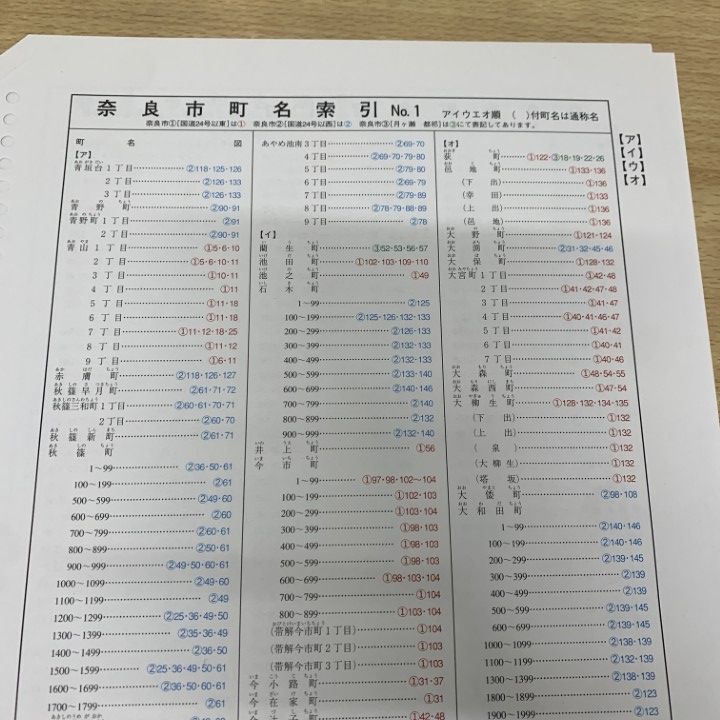 奈良市町名索引 No.1
アイウエオ順 ( )付町名は通称名
奈良市①[国道24号以東]は① 奈良市②[国道24号以西]は② 奈良市③[月ヶ瀬 都祁]は③にて表記してあります。
【ア】
【イ】
【ウ】
【オ】
町名 図
【ア】
青垣台1丁目 ②118・125・126
2丁目 ②126・133
3丁目 ②126・133
青野町 ②90・91
青野町1丁目 ②91
2丁目 ②90・91
青山1丁目 ①5・6・10
2丁目 ①5・6・10・11
3丁目 ①10・11
4丁目 ①11
5丁目 ①11・18
6丁目 ①11・18
7丁目 ①11・12・18・25
8丁目 ①11・12
9丁目 ①6・11
赤膚町 ②118・126・127
秋篠早月町 ②61・71・72
秋篠三和町1丁目 ②60・61・70・71
2丁目 ②60・70
秋篠新町 ②61・71
秋篠町
1〜99 ②36・50・61
100〜199 ②61
500〜599 ②49・60
600〜699 ②60
700〜799 ②60・61
800〜899 ②50・61
900〜999 ②49・50・60・61
1000〜1099 ②49・60
1100〜1199 ②49
1200〜1299 ②25・36・49・50
1300〜1399 ②35・36・49
1400〜1499 ②35・36・49・50
1500〜1599 ②25・36・49・50・61
1600〜1699 ②36・50・60・61
1700〜1799 ②61
あやめ池南3丁目 ②69・70
4丁目 ②69・70・79・80
5丁目 ②70・79・80
6丁目 ②69・79
7丁目 ②79・89
8丁目 ②78・79・88・89
9丁目 ②78
【イ】
藺生町 ③52・53・56・57
池田町 ①102・103・109・110
池之町 ①49
石木町
1〜99 ②125
100〜199 ②125・126・132・133
200〜299 ②126・133
300〜399 ②132・133
400〜499 ②132・133
500〜599 ②133・140
600〜699 ②140・146
700〜799 ②140
800〜899 ②132
900〜999 ②132・140
井上町 ①56
今市町
1〜99 ①97・98・102〜104
100〜199 ①102・103
200〜299 ①103・104
300〜399 ①98・103
400〜499 ①98・103
500〜599 ①98・103
600〜699 ①98・103・104
700〜799 ①103・104
800〜899 ①103・104
(帯解今市町1丁目) ①104
(帯解今市町2丁目) ①104
(帯解今市町3丁目) ①104
今小路町 ①31・37
今在家町 ①31
①42・48
【オ】
荻町 ①122・③18・19・22・26
邑地町 ①133・136
(下出) ①136
(幸田) ①133
(上出) ①136
(邑地) ①136
大野町 ①121・124
大渕町 ②31・32・45・46
大保町 ①128・132
大宮町1丁目 ①42・48
2丁目 ①41・42・47・48
3丁目 ①41・47
4丁目 ①40・41・46・47
5丁目 ①41・42
6丁目 ①40・41
7丁目 ①40・46
大森町 ①48・54・55
大森西町 ①47・54
大柳生町 ①128・132・134・135
(下出) ①132
(上出) ①132
(泉) ①132
(大柳生) ①132
(塔坂) ①132
大倭町 ②98・108
大和田町
1〜99 ②140・146
100〜199 ②140・146
200〜299 ②139・145
300〜399 ②139
400〜499 ②139
500〜599 ②139・145
600〜699 ②139・145
1000〜1099 ②138・139
1100〜1199 ②132・139
1300〜1399 ②138・139
1800〜1899 ②138
1900〜1999 ②139